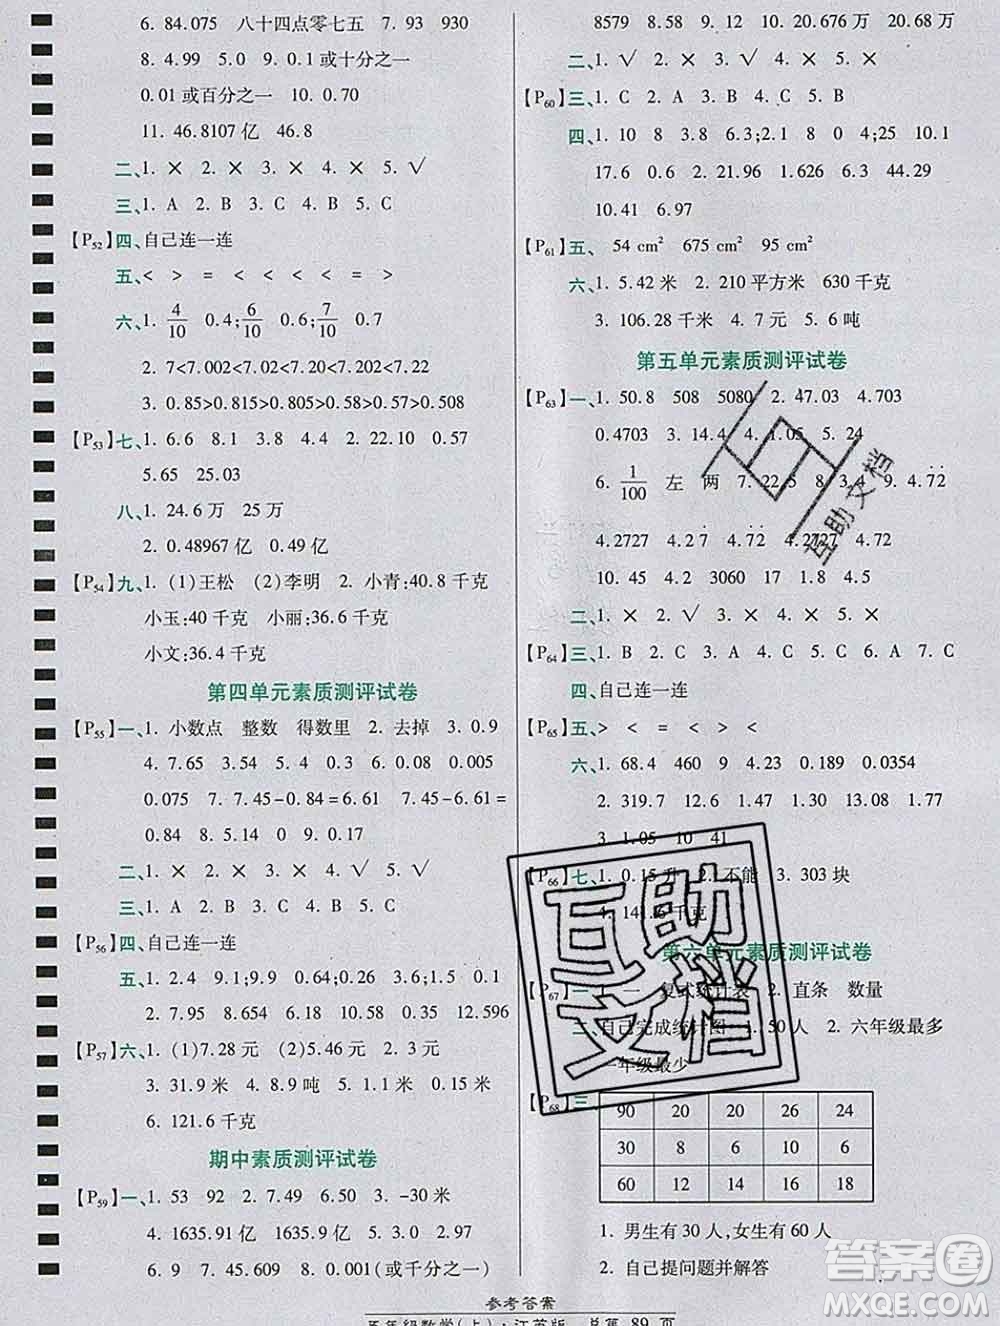 6. 84.075 八十四点零七五 7. 93 930
8. 4.99 5.0 9. 0.1或十分之一
0.01或百分之一 10. 0.70
11. 46.8107亿 46.8
二、1. × 2. × 3. × 4. × 5. √
三、1. A 2. B 3. A 4. B 5. C
【P52】四、自己连一连
五、< > = < < < = >
六、1. 4/10 0.4; 6/10 0.6; 7/10 0.7
2. 7<7.002<7.02<7.20<7.202
3. 0.85>0.815>0.805>0.58>0.57>0.508
【P53】七、1. 6.6 8.1 3.8 4. 22.10 0.57
5.65 25.03
八、1. 24.6万 25万
2. 0.48967亿 0.490亿
【P54】九、1. (1)王松 (2)李明 2. 小青:40.8千克
小玉:40千克 小丽:38.9千克
小文:36.4千克
第四单元素质测评试卷
【P55】一、1. 小数点 整数 得数里 2. 去掉 3. 0.9
4. 7.65 3.54 5. 0.08 6. 0.10 0.005
0.075 7. 7.45-0.84=6.61 7.45-6.61=
0.84 8. 5.14 9. 0.17
二、1. × 2. × 3. × 4. √ 5. √
三、1. A 2. A 3. B 4. A 5. C
【P56】四、自己连一连
五、1. 2.4 9.1;9.9 0.76;1.5 1.6;1 0.1
2. 7.95 8.654 6.18 10.26 0.43 12.596
【P57】六、1. (1)7.28元 (2)5.46元 2. 3元
3. 31.9米 4. 8.9吨 5. (1)3米 (2)3米
6. 121.6千克
期中素质测评试卷
【P59】一、1. 53 92 2. 7.49 5.6 3. -30米
4. 1635.91亿 1635.9亿 5. 2.93 2.97
6. 9 7. 450.600 8. 0.001(或千分之一)
8579 8.58 9. 12 10. 20.676万 20.68万
二、1. √ 2. × 3. × 4. √ 5. ×
【P60】三、1. C 2. A 3. C 4. B 5. A
四、1. 10 8 3.8 6.3;2.1 8 0 4;25 10.1
17.6 0.6 2. 21.96 1.626 3. 9.9
10.41 6.97
【P61】五、54 cm² 675 cm² 95 cm²
六、1. 5.42米 2. 210平方米 630千克
3. 106.28千米 4. 7元 5. 6吨
第五单元素质测评试卷
【P63】一、1. 50.8 508 5080 2. 47.03 4.703
0.4703 3. 14.4 4. 1.05 5. 24
6. 1/100 左 两 7. 22.5 8. 3.4 9. 4.7̇2̇
10. 45 4 3060 11. 1.8 4.5
二、1. × 2. √ 3. × 4. × 5. ×
【P64】三、1. B 2. C 3. C 4. A 5. B 6. A 7. C
四、自己连一连
【P65】五、> < = < > <
六、1. 68.4 460 9 4.23 0.189 0.0354
2. 319.7 12.6 1.47 2.08 1.01 1.77
3. 1.05 10 41
【P66】七、1. 0.15升 2. 不能 3. 303块
4. 141.6千克
第六单元素质测评试卷
【P67】一、1. 一 复式统计表 2. 直条 数量
二、自己完成统计图 1. 50人 2. 六年级最多
一年级最少
【P68】三、
90 20 20 26 24
30 8 6 8 8
60 12 14 18 16
1. 男生有30人,女生有60人
2. 自己提问题并解答
参考答案
五年级数学(上)·江苏版 总第 89 页
互助文档
互助文档
答案圈
MXQE.COM